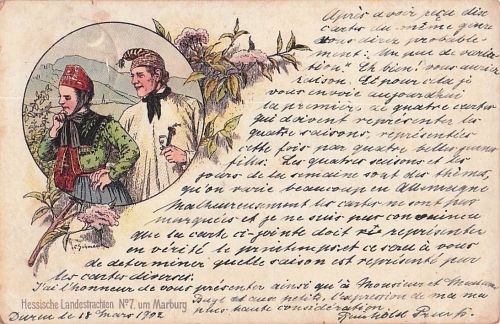 Après avoir reçu dix
cartes du même genre
vous direz probable-
ment: Un peu de varia-
tion! Eh bien! vous avez
raison. Et pour cela je
vous envoie aujourd'hui
la première de quatre cartes
qui doivent représenter les
quatre saisons, représentées
cette fois par quatre belles jeunes
filles. Les quatre saisons et les
jours de la semaine sont des thèmes,
qu'on varie beaucoup en Allemagne
Malheureusement les cartes ne sont pas
marquées et je ne suis pas convaincu
que la carte ci-jointe doit représenter
en vérité le printemps et ce sera à vous
de déterminer quelle saison est représenté par
les cartes diverses.
J'ai l'honneur de vous présenter ainsi qu'à Monsieur et Madame
et aux petits, l'expression de ma
plus haute considération.
Hessische Landestrachten No 7. um Marburg
Duren le 18 Mars 1902